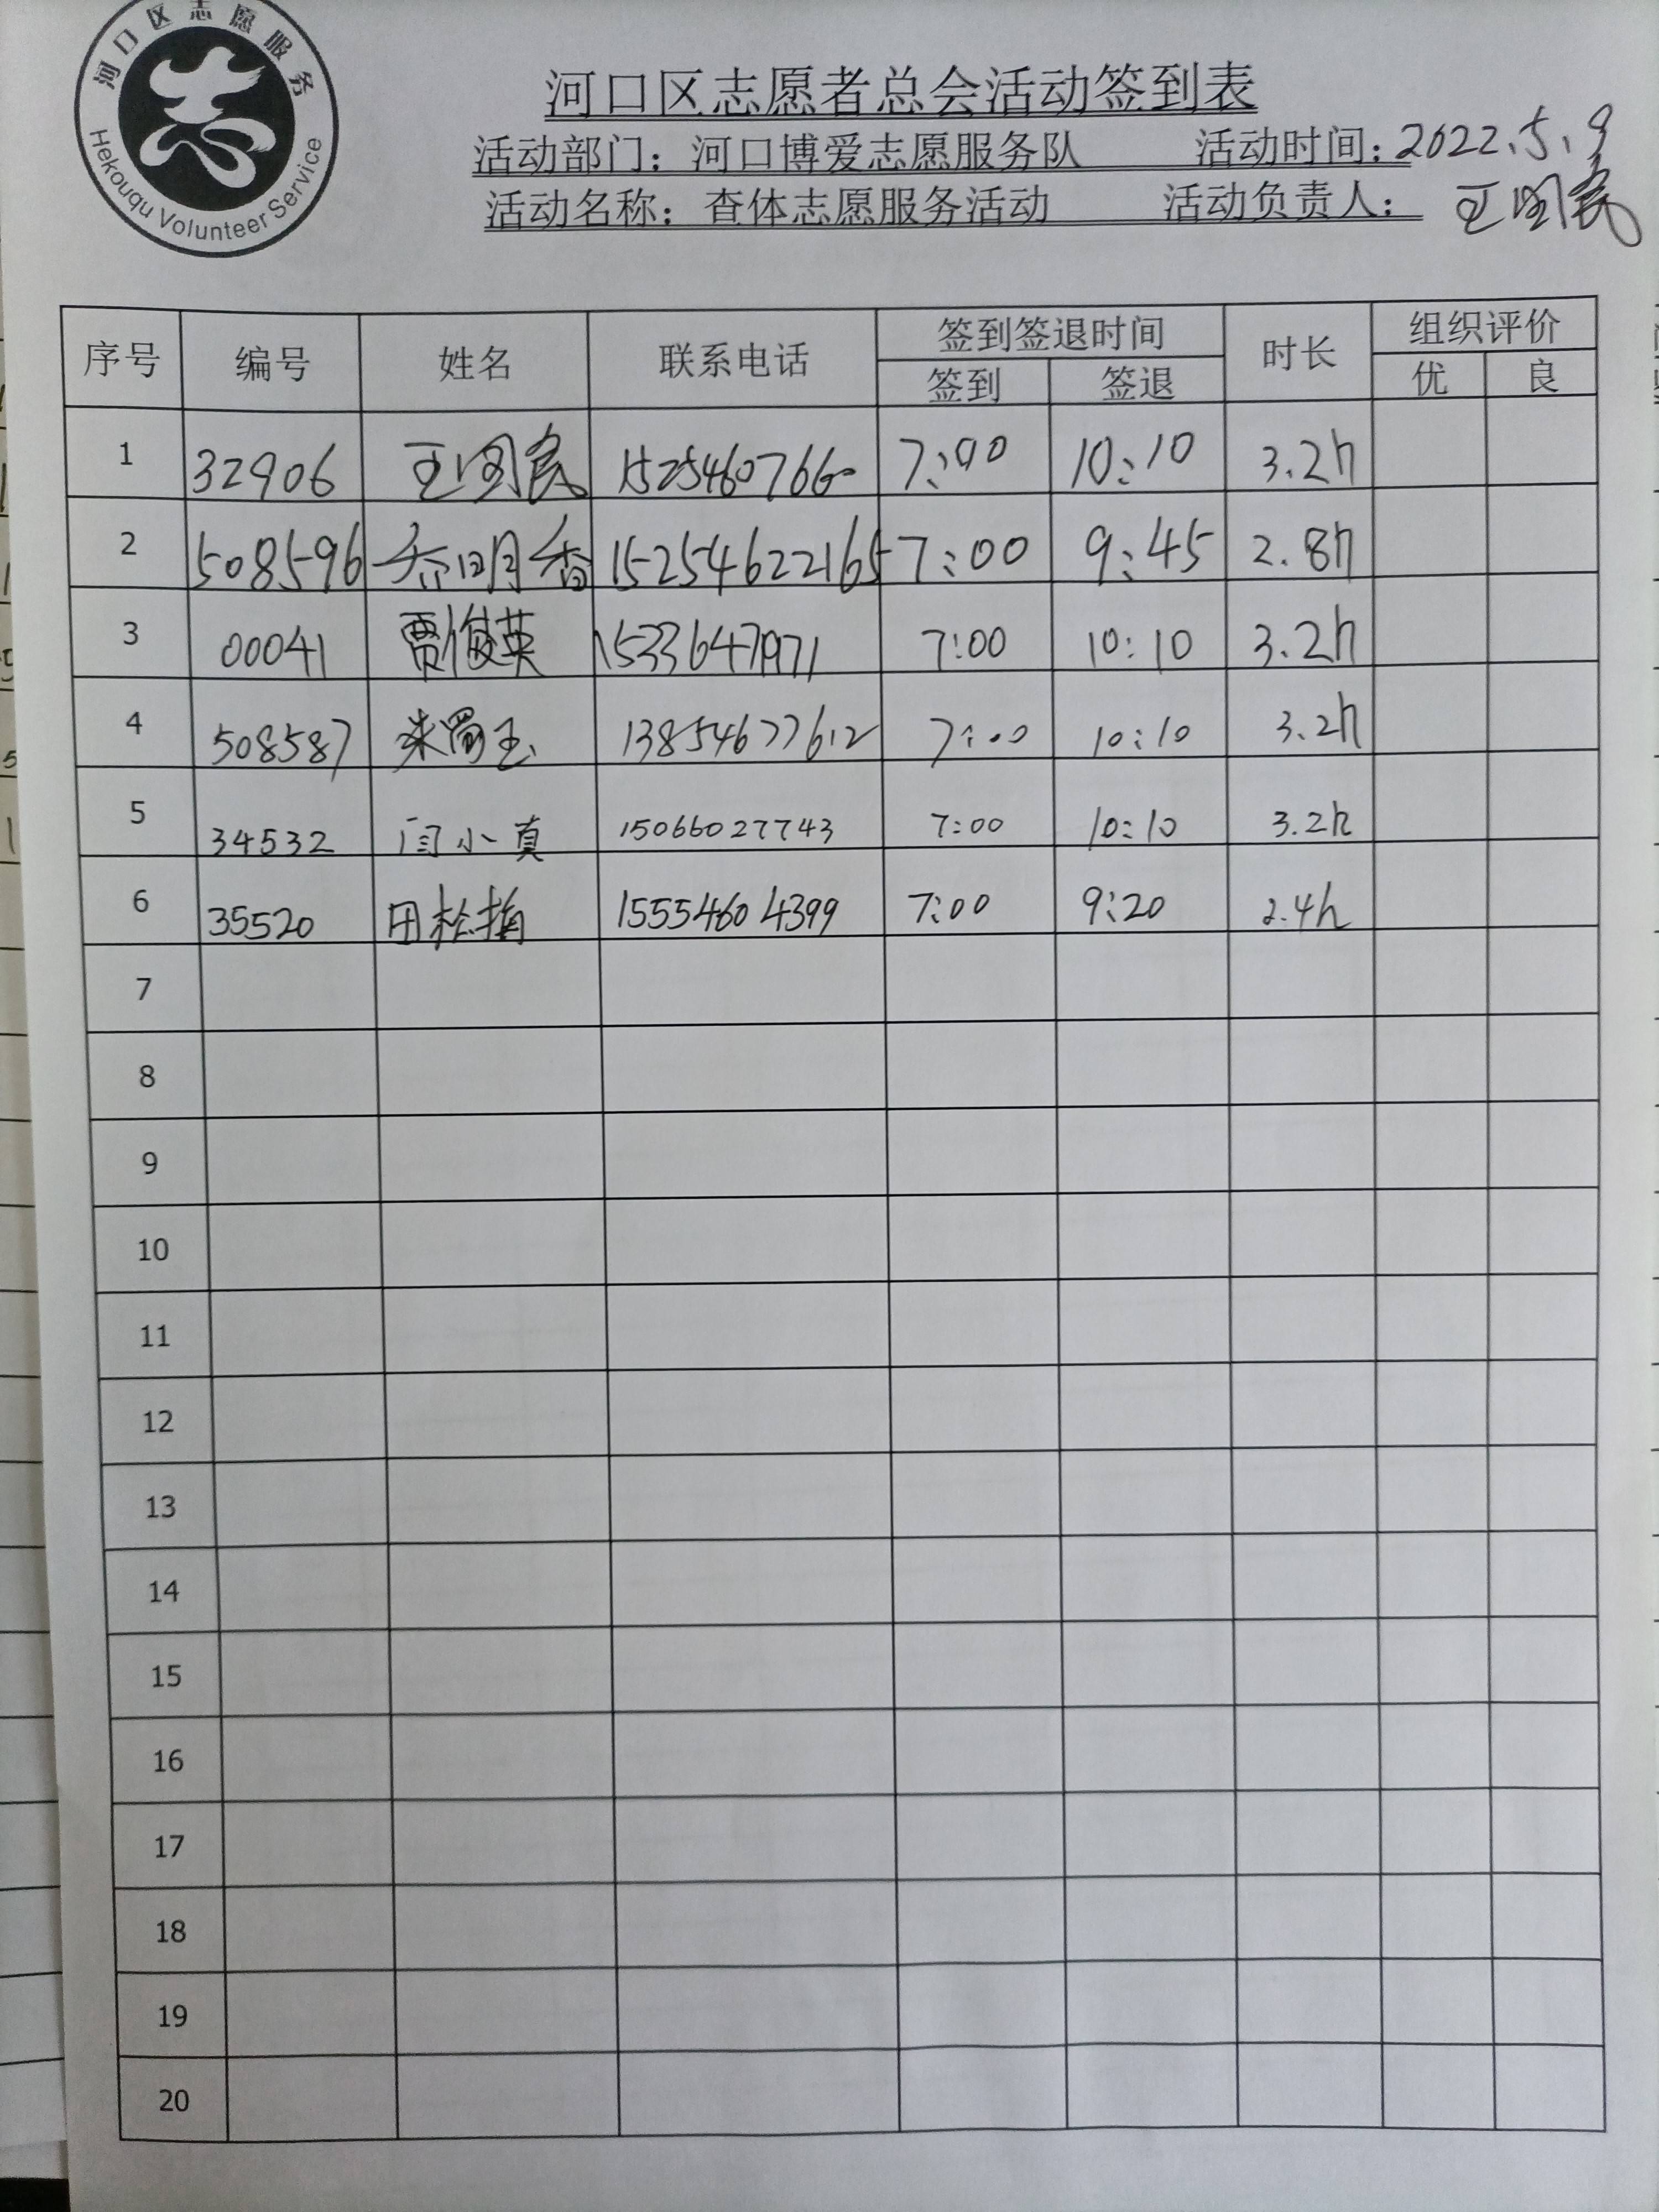 河口区志愿服务
Hekouqu Volunteer Service
河口区志愿者总会活动签到表
活动部门：河口博爱志愿服务队 活动时间：2022.5.9
活动名称：查体志愿服务活动 活动负责人：王国民
序号 编号 姓名 联系电话 签到签退时间 时长 组织评价
签到 签退 优 良
1 32906 王国民 15254607660 7:00 10:10 3.2h
2 508596 乔明香 15254622165 7:00 9:45 2.8h
3 00041 贾俊英 15336447971 7:00 10:10 3.2h
4 508587 朱蜀玉 13854677612 7:00 10:10 3.2h
5 34532 闫小真 15066027743 7:00 10:10 3.2h
6 35520 田松梅 15554604399 7:00 9:20 2.4h
7
8
9
10
11
12
13
14
15
16
17
18
19
20